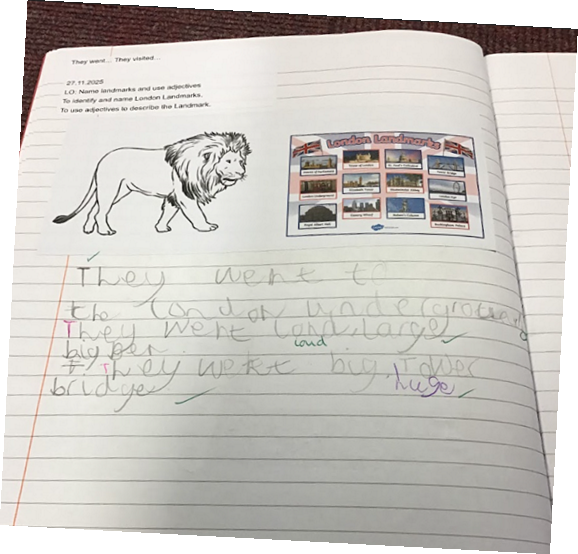 They went... They visited...
27.11.2025
LO: Name landmarks and use adjectives
To identify and name London Landmarks.
To use adjectives to describe the Landmark.
London Landmarks
They went to
the london underground
They went loud, large
big ben.
loud
They went big, Tower
huge
bridge